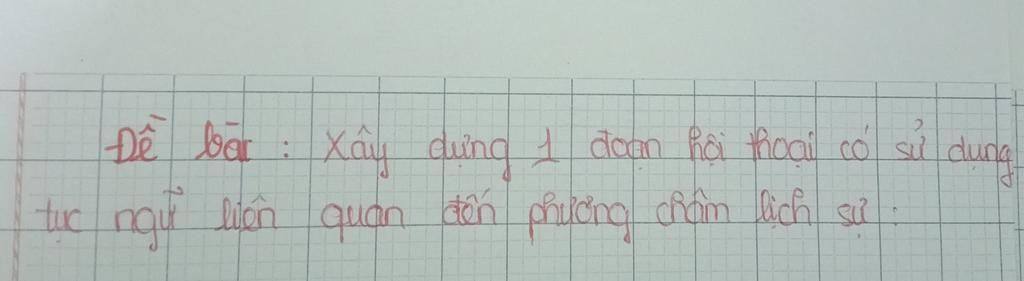 Đề bài : Xây dựng 1 đoạn hội thoại có sử dụng
tục ngữ liên quan đến phương châm lịch sự .